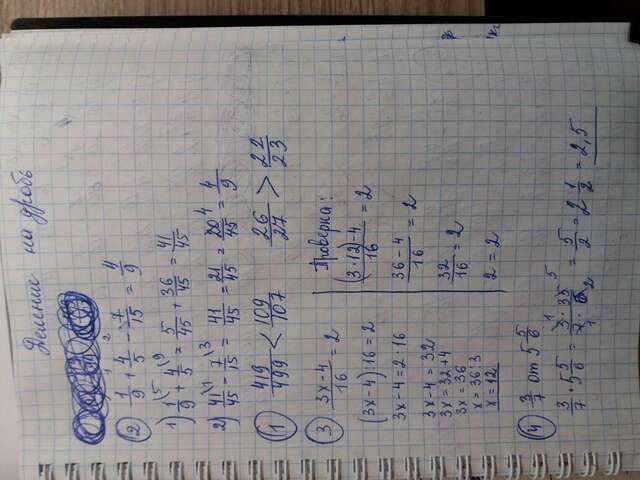 Деление на дробь
② 1/9 + 4/5 - 7/15 = 4/9
1) 1\5/9 + 4\9/5 = 5/45 + 36/45 = 41/45
2) 41\1/45 - 7\3/15 = 41/45 - 21/45 = 20 4/45 = 4/9
① 419/499 < 109/107 26/27 > 22/23
③ (3x-4)/16 = 2
(3x-4):16=2
3x-4=2·16
3x-4=32
3x=32+4
3x=36
x=36:3
x=12
Проверка:
((3·12)-4)/16 = 2
(36-4)/16 = 2
32/16 = 2
2=2
④ 3/7 от 5 5/6
3/7 · 5 5/6 = (3 1 · 35 5)/(7 1 · 6 2) = 5/2 = 2 1/2 = 2,5